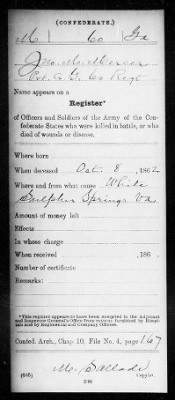 (CONFEDERATE.)
M | Co | Ga
Jno. M. Mercer
Pvt. Co. G. 60 Regt
Name appears on a
Register*
of Officers and Soldiers of the Army of the Con-
federate States who were killed in battle, or who
died of wounds or disease.
Where born
When deceased Oct. 8, 1862
Where and from what cause White
Sulphur Springs Va.
Amount of money left
Effects
In whose charge
When received , 186 .
Number of certificate
Remarks:
*This register appears to have been compiled in the Adjutant
and Inspector General's Office from reports furnished by Hospi-
tals and by Regimental and Company Officers.
Confed. Arch., Chap. 10, File No. 4, page 167
M.
(646) Copyist.